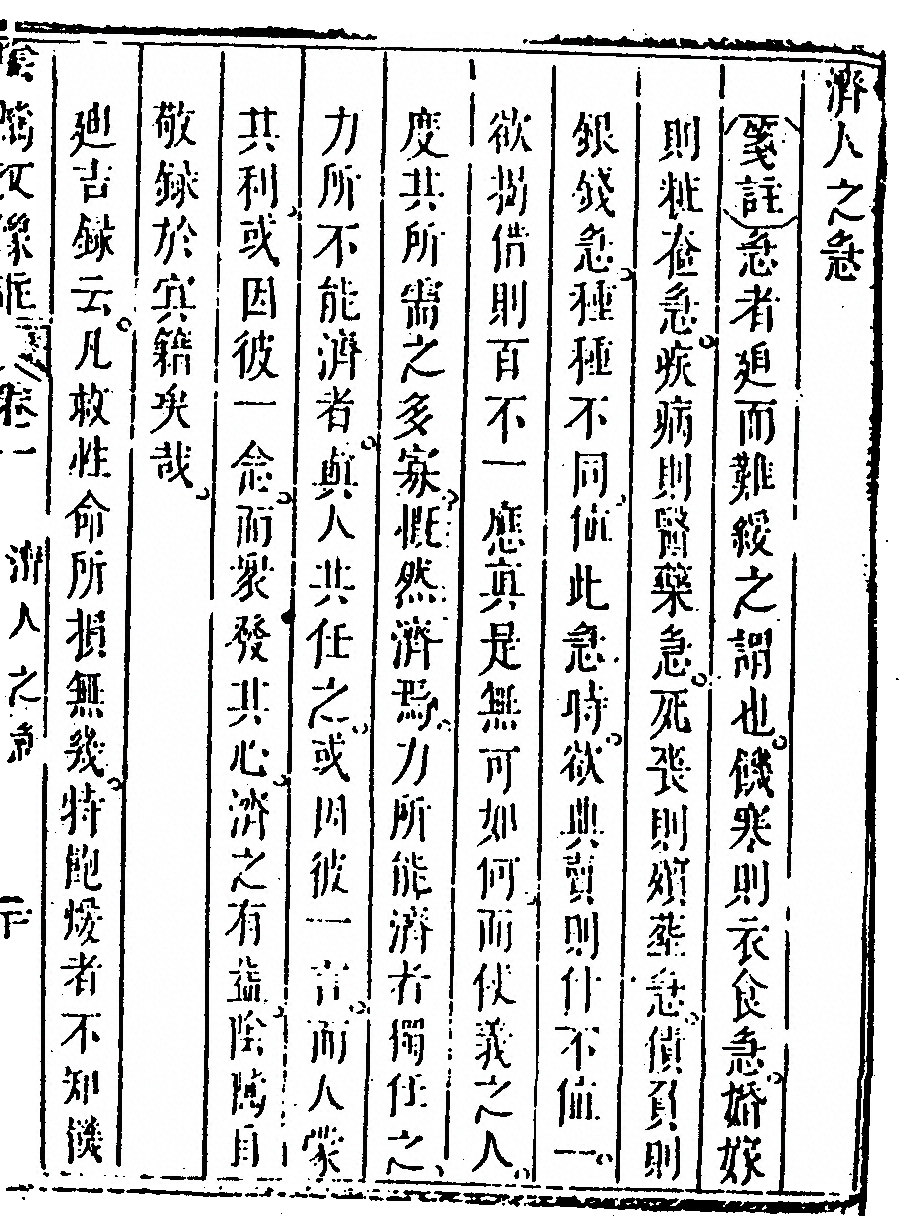 濟人之急
箋註急者廹而難緩之謂也饑寒則衣食急婚嫁
則粧奩急疾病則醫藥急死喪則殯塟急債負則
銀錢急種種不同值此急時欲典賣則什不值一
欲揭借則百不一應真是無可如何而仗義之人
度其所需之多寡慨然濟焉力所能濟者獨任之
力所不能濟者與人共任之或因彼一言而人蒙
其利或因彼一念而衆發其心濟之有益陰隲自
敬録於㝠籍矣哉
廸吉録云凡救性命所損無幾特飽煖者不知饑
陰隲文像註 卷一 濟人之急